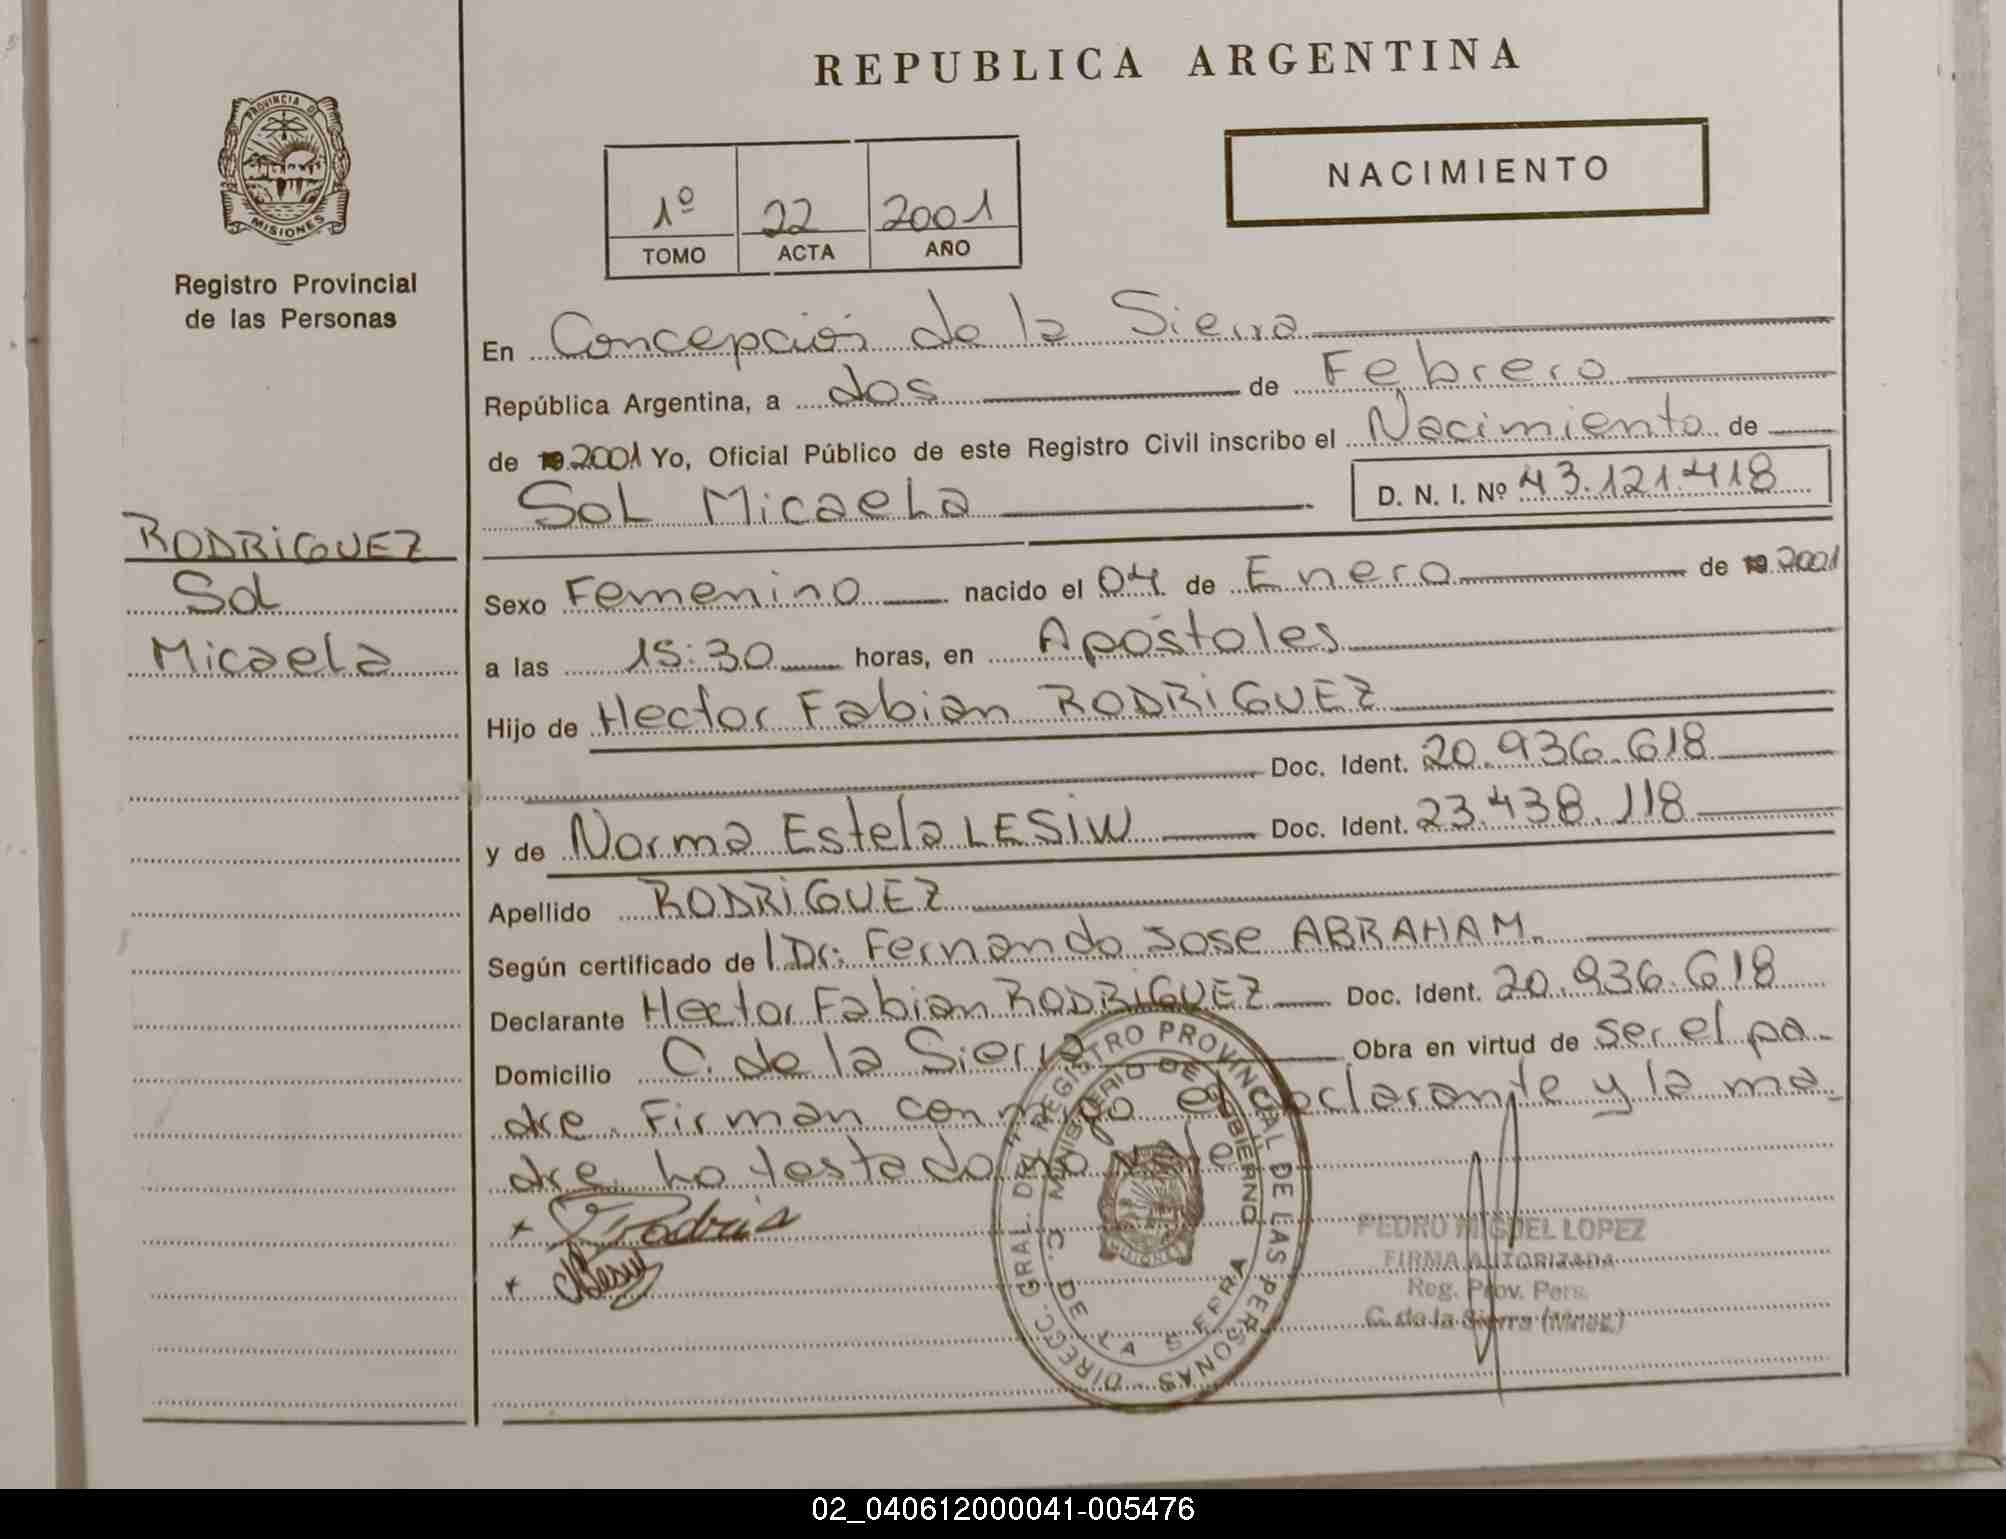 REPUBLICA ARGENTINA
PROVINCIA DE
MISIONES
Registro Provincial
de las Personas
NACIMIENTO
1º 22 2001
TOMO ACTA AÑO
En Concepción de la Sierra
República Argentina, a dos de Febrero
de 19 2001 Yo, Oficial Público de este Registro Civil inscribo el Nacimiento de
Sol Micaela D. N. I. Nº 43.121.418
RODRiGUEZ
Sol
Micaela
Sexo Femenino nacido el 04 de Enero de 19 2001
a las 15:30 horas, en Apóstoles
Hijo de Hector Fabian RODRiGUEZ
Doc. Ident. 20.936.618
y de Norma Estela LESIW Doc. Ident. 23.438.118
Apellido RODRiGUEZ
Según certificado de l Dr: Fernando Jose ABRAHAM.
Declarante Hector Fabian RODRiGUEZ Doc. Ident. 20.936.618
Domicilio C. de la Sierra Obra en virtud de ser el pa-
dre. Firman conmigo el declarante y la ma-
dre. lo testado no vale
DIRECC. GRAL. DEL REGISTRO PROVINCIAL DE LAS PERSONAS
MINISTERIO DE GOBIERNO
C. DE LA SIERRA
MISIONES
PEDRO MIGUEL LOPEZ
FIRMA AUTORIZADA
Reg. Prov. Pers.
C. de la Sierra (Mnes.)
02_040612000041-005476